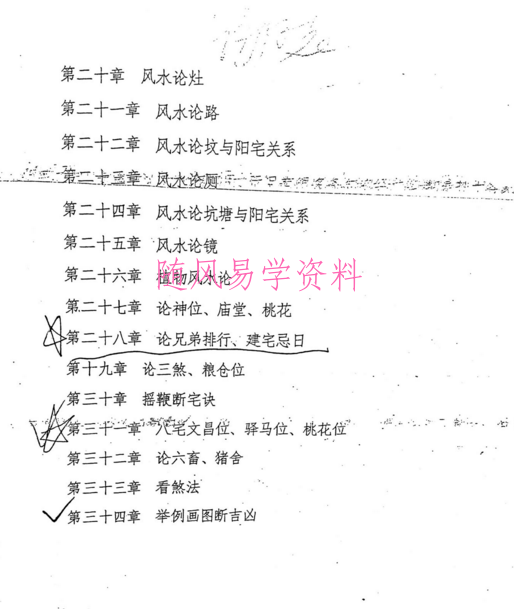 第二十章 风水论灶
第二十一章 风水论路
第二十二章 风水论坟与阳宅关系
第二十三章 风水论厕
第二十四章 风水论坑塘与阳宅关系
第二十五章 风水论镜
第二十六章 植物风水论
随风易学资料
第二十七章 论神位、庙堂、桃花
第二十八章 论兄弟排行、建宅忌日
第十九章 论三煞、粮仓位
第三十章 摇鞭断宅诀
第三十一章 八宅文昌位、驿马位、桃花位
第三十二章 论六畜、猪舍
第三十三章 看煞法
第三十四章 举例画图断吉凶